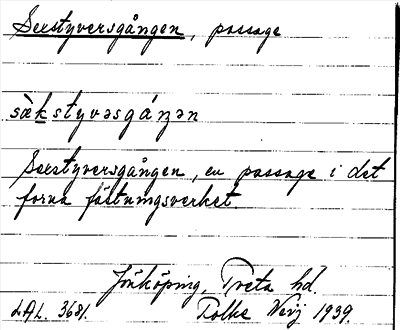 Sexstyversgången, passage
sèkstyvəsgáŋən
Sexstyversgången, en passage i det
forna fästningsverket
Jönköping, Tveta hd.
LAL. 3681. Folke 1939